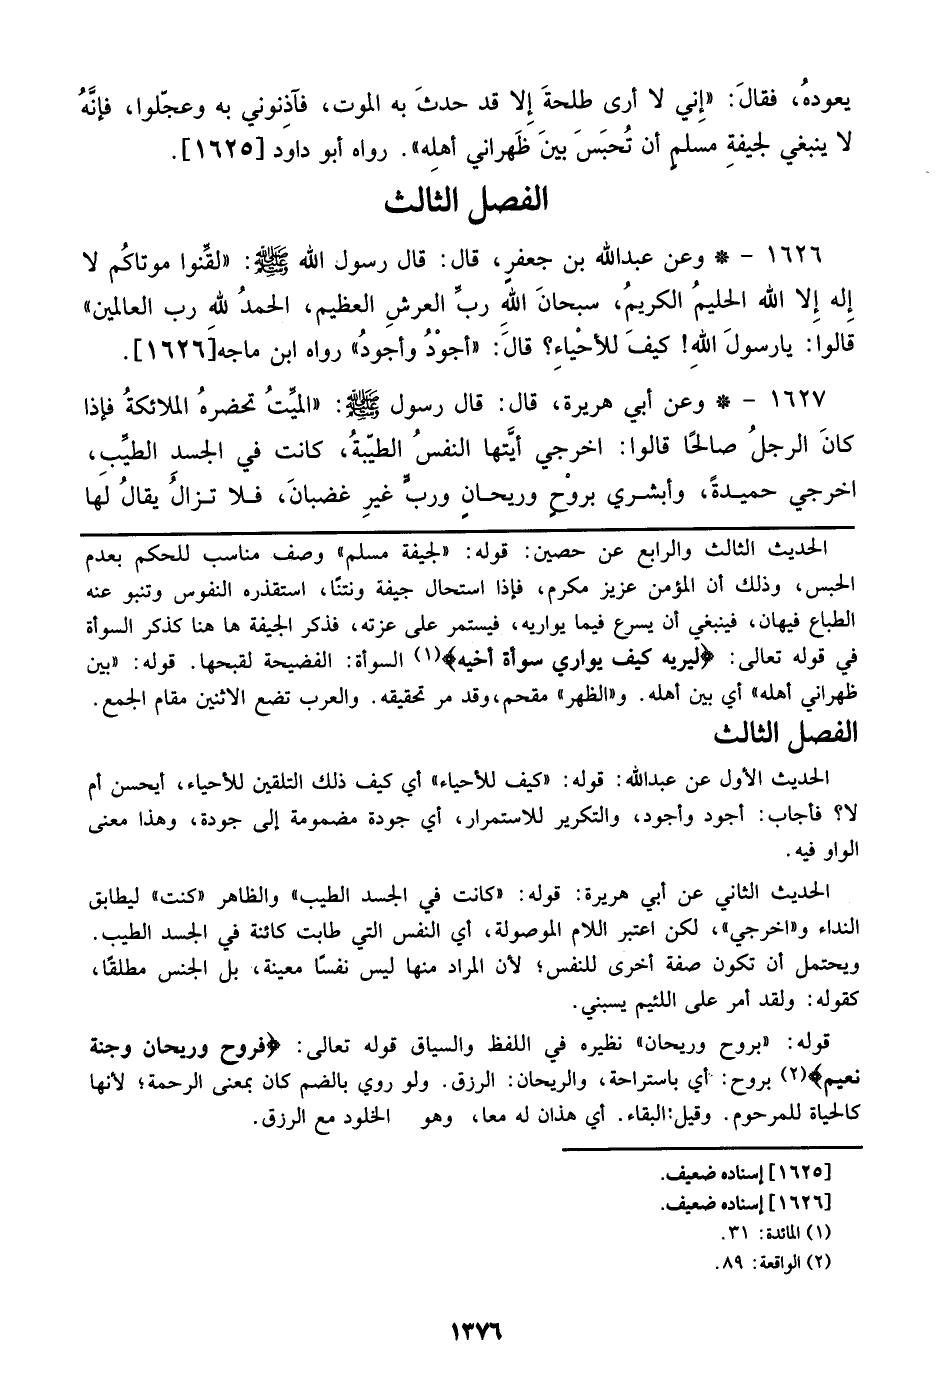 يعودهُ، فقالَ: «إني لا أرى طلحةَ إِلا قد حدثَ به الموت، فآذِنوني به وعجّلوا، فإنَّهُ
لا ينبغي لجيفةِ مسلمٍ أن تُحبَسَ بينَ ظَهراني أهلِه». رواه أبو داود [١٦٢٥].
الفصل الثالث
١٦٢٦ – * وعن عبدالله بن جعفرٍ، قال: قال رسول الله ﷺ: «لقِّنوا موتاكُم لا
إِله إِلا الله الحليمُ الكريمُ، سبحانَ اللهِ ربِّ العرشِ العظيم، الحمدُ للهِ رب العالمين»
قالوا: يارسولَ اللهِ! كيفَ للأحْياءِ؟ قالَ: «أجوْدُ وأجودُ» رواه ابن ماجه[١٦٢٦].
١٦٢٧ – * وعن أبي هريرة، قال: قال رسول ﷺ: «الميِّتُ تحضرهُ الملائكةُ فإذا
كانَ الرجلُ صالحًا قالوا: اخرجي أيَّتها النفسُ الطيّبةُ، كانت في الجسدِ الطيِّبِ،
اخرجي حميـدةً، وأبشـري بروْحٍ وريحـانٍ وربٍّ غيرِ غضبانَ، فـلا تـزالُ يقالُ لها
الحديث الثالث والرابع عن حصين: قوله: «لجيفة مسلم» وصف مناسب للحكم بعدم
الحبس، وذلك أن المؤمن عزيز مكرم، فإذا استحال جيفة ونتنًا، استقذره النفوس وتنبو عنه
الطباع فيهان، فينبغي أن يسرع فيما يواريه، فيستمر على عزته، فذكر الجيفة ها هنا كذكر السوأة
في قوله تعالى: ﴿ليريه كيف يواري سوأة أخيه﴾(١) السوأة: الفضيحة لقبحها. قوله: «بين
ظهراني أهله» أي بين أهله. و«الظهر» مقحم،وقد مر تحقيقه. والعرب تضع الاثنين مقام الجمع.
الفصل الثالث
الحديث الأول عن عبدالله: قوله: «كيف للأحياء» أي كيف ذلك التلقين للأحياء، أيحسن أم
لا؟ فأجاب: أجود وأجود، والتكرير للاستمرار، أي جودة مضمومة إلى جودة، وهذا معنى
الواو فيه.
الحديث الثاني عن أبي هريرة: قوله: «كانت في الجسد الطيب» والظاهر «كنت» ليطابق
النداء و«اخرجي»، لكن اعتبر اللام الموصولة، أي النفس التي طابت كائنة في الجسد الطيب.
ويحتمل أن تكون صفة أخرى للنفس؛ لأن المراد منها ليس نفسًا معينة، بل الجنس مطلقًا،
كقوله: ولقد أمر على اللئيم يسبني.
قوله: «بروح وريحان» نظيره في اللفظ والسياق قوله تعالى: ﴿فروح وريحان وجنة
نعيم﴾(٢) بروح: أي باستراحة، والريحان: الرزق. ولو روي بالضم كان بمعنى الرحمة؛ لأنها
كالحياة للمرحوم. وقيل:البقاء. أي هذان له معا، وهو الخلود مع الرزق.
[١٦٢٥] إسناده ضعيف.
[١٦٢٦] إسناده ضعيف.
(١) المائدة: ٣١.
(٢) الواقعة: ٨٩.
١٣٧٦